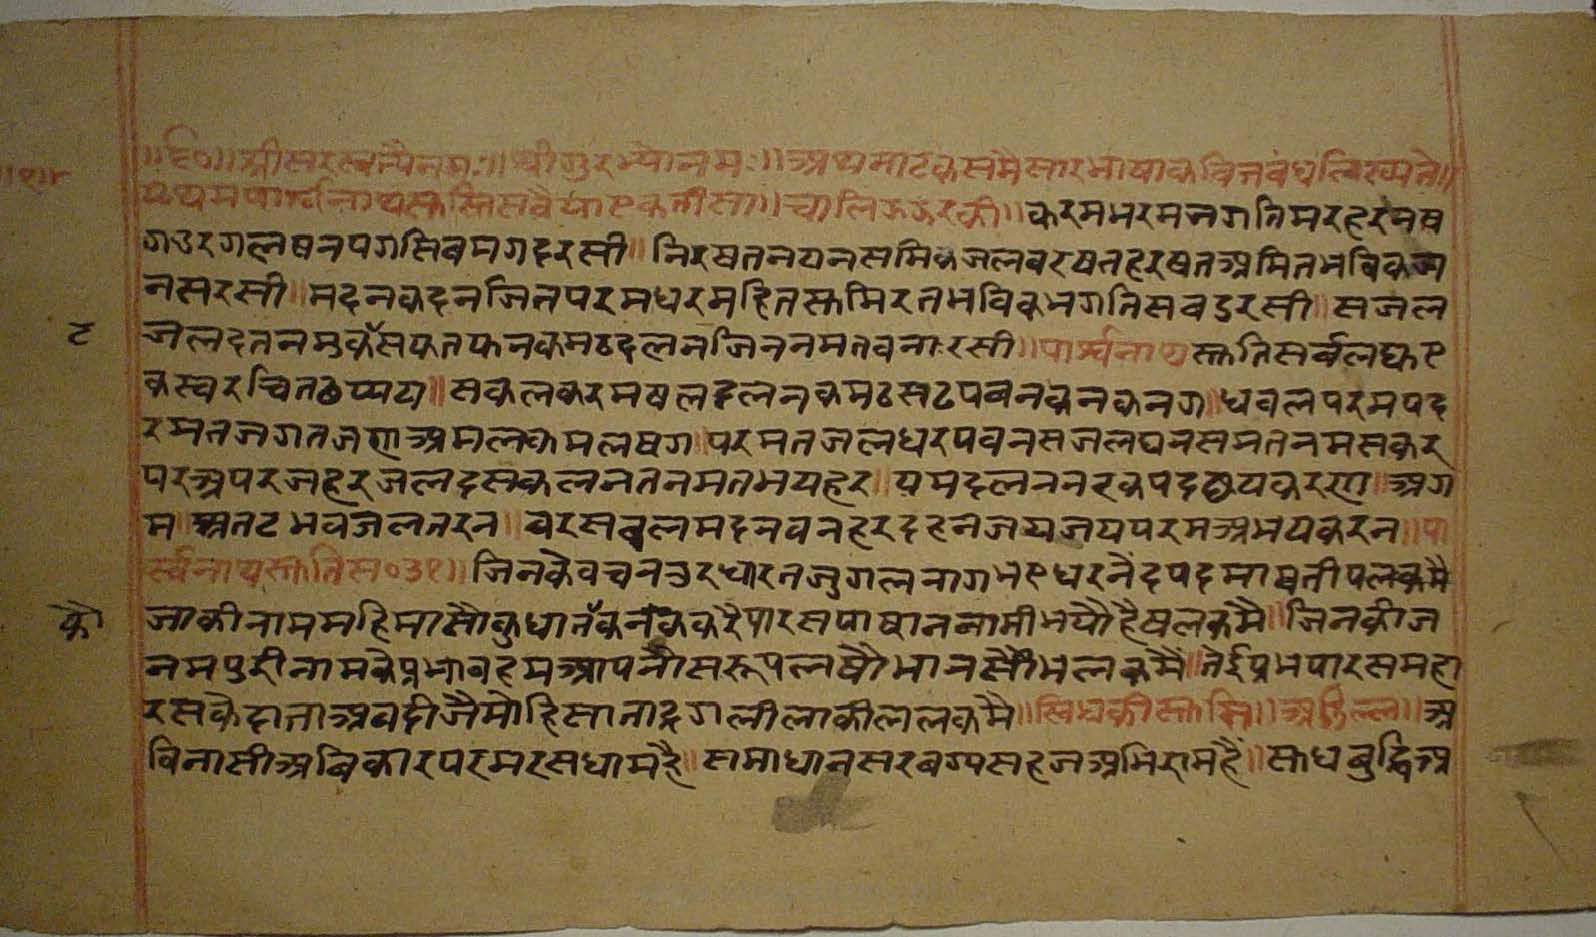 ॥६०॥ श्रीसरस्वत्यैनमः॥ श्रीगुरभ्योनमः॥ अथनाटकसमैसारभाषाकवित्तबंधलिख्यते॥
प्रथमपार्श्वनाथस्तुतिसवैयाएकतीसा॥ चालिझूझरकी॥ करमभरमजगतिमरहरनष
गउरगलषनपगसिवमगदरसी॥ निरषतनयनसमिकजलबरषतहरषतअमितभबिकज
नसरसी॥ मदनकदनजितपरमधरमहितसुमिरतभविकभगतिसबडरसी॥ सजल
जलदतनमुकुँसपतफनकमठदलनजिननमतवनारसी॥ पार्श्वनाथस्तुतिसर्बलघुए
ट
कस्वरचितछप्पय॥ सकलकरमषलदलनकमठसठपवनकनकनग॥ धवलपरमपद
रमतजगतजनअमलकमलषग॥ परमतजलधरपवनसजलघनसमतनमसकर
परअघरजहरजलदसकलनतनमतभयहर॥ यमदलननरकपदछयकरन॥ अग
म अतटभवजलतरन॥ वरसबलमदनवनहरदहनजयजयपरमअभयकरन॥ पा
र्श्वनाथस्तुतिस०३१॥ जिनकेवचनउरधारतजुगलनागभएधरनैंदपदमाबतीपलकमै
कौ
जाकीनाममहिमासौकुधातुँकनककरैपारसपाषाननामीभयौहैषलकमै॥ जिनकीज
नमपुरीनामकेप्रभावहमआपनौसरूपलषौभानसौभलकमैं॥ तेईप्रभपारसमहा
रसकेदाताअबदीजैमोहिसाताद्रगलीलाकीललकमै॥ सिधकीस्तुति॥ अडिल्ल॥ अ
विनासीअबिकारपरमरसधामहै॥ समाधानसरबग्यसहजअभिरामहैं॥ सुधबुद्धिअ